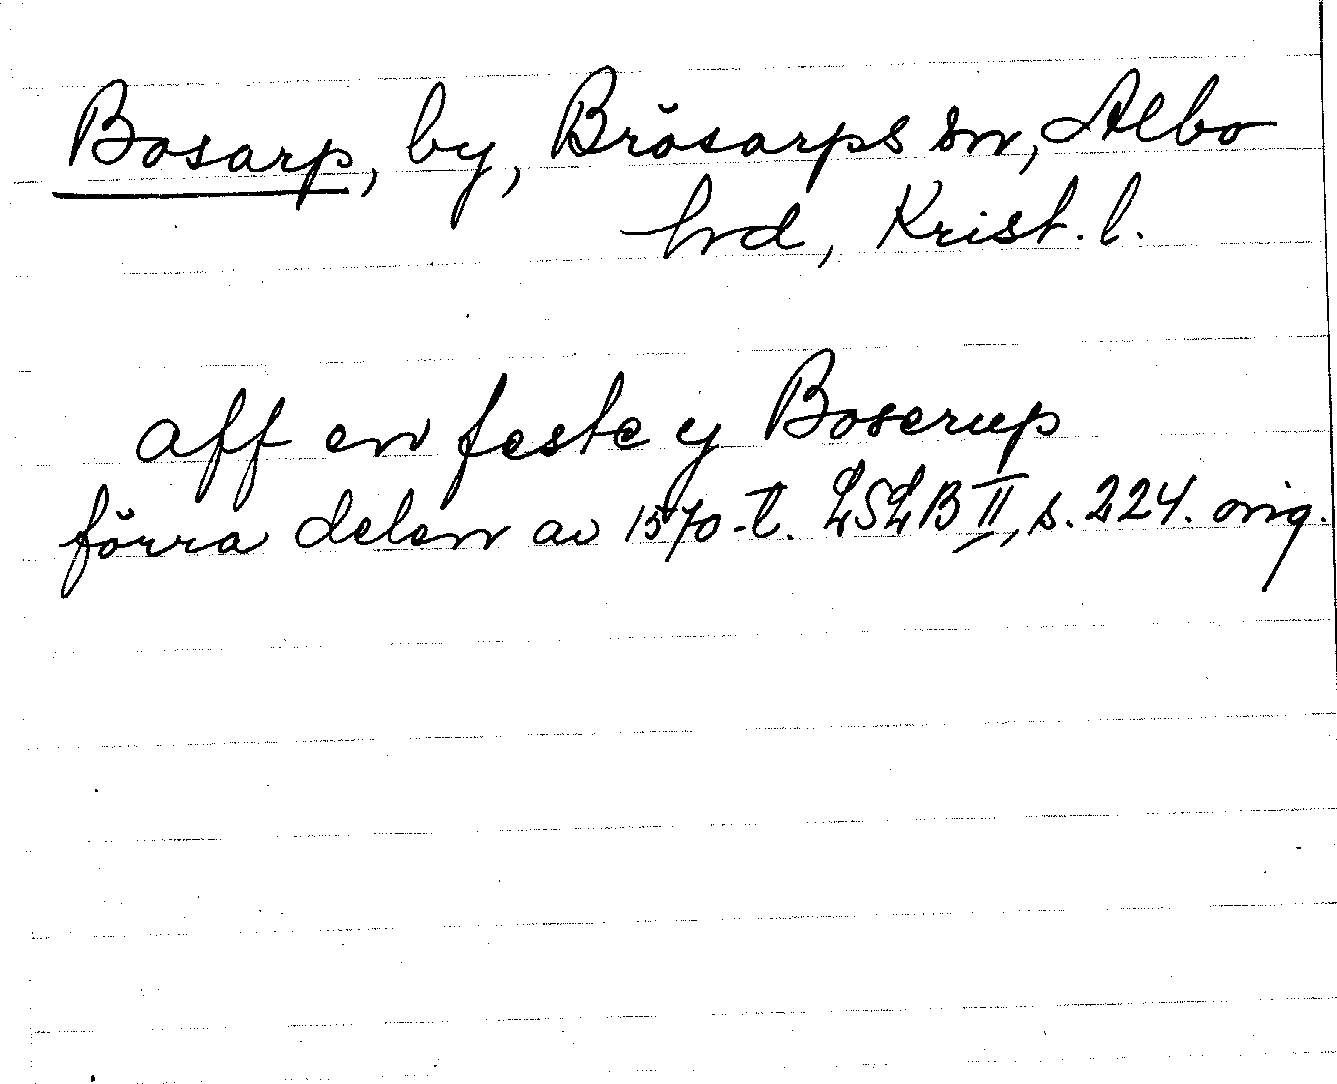 Bosarp, by, Brösarps sn, Albo
hrd, Krist. l.
aff en feste y Boserup
förra delen av 1570-t. LSLB II, s. 224. orig.